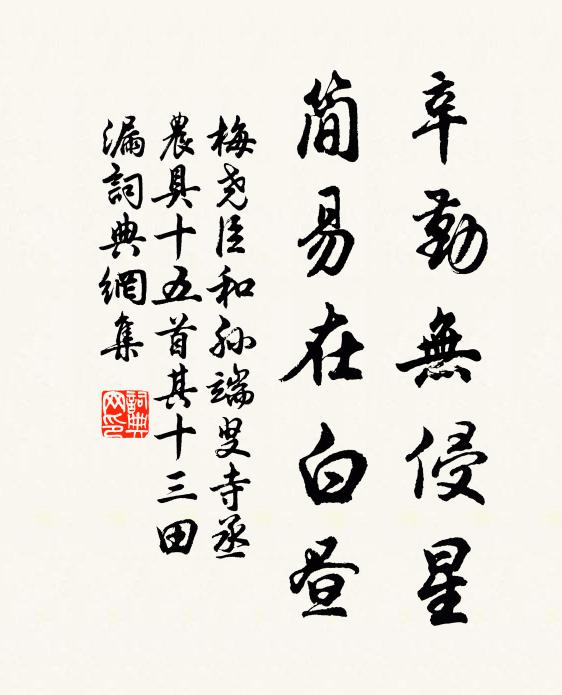 辛勤無侵星
簡易在白晝
梅堯臣和孫端叟寺丞
農具十五首其十三田
漏詞典網集
詞典
网印